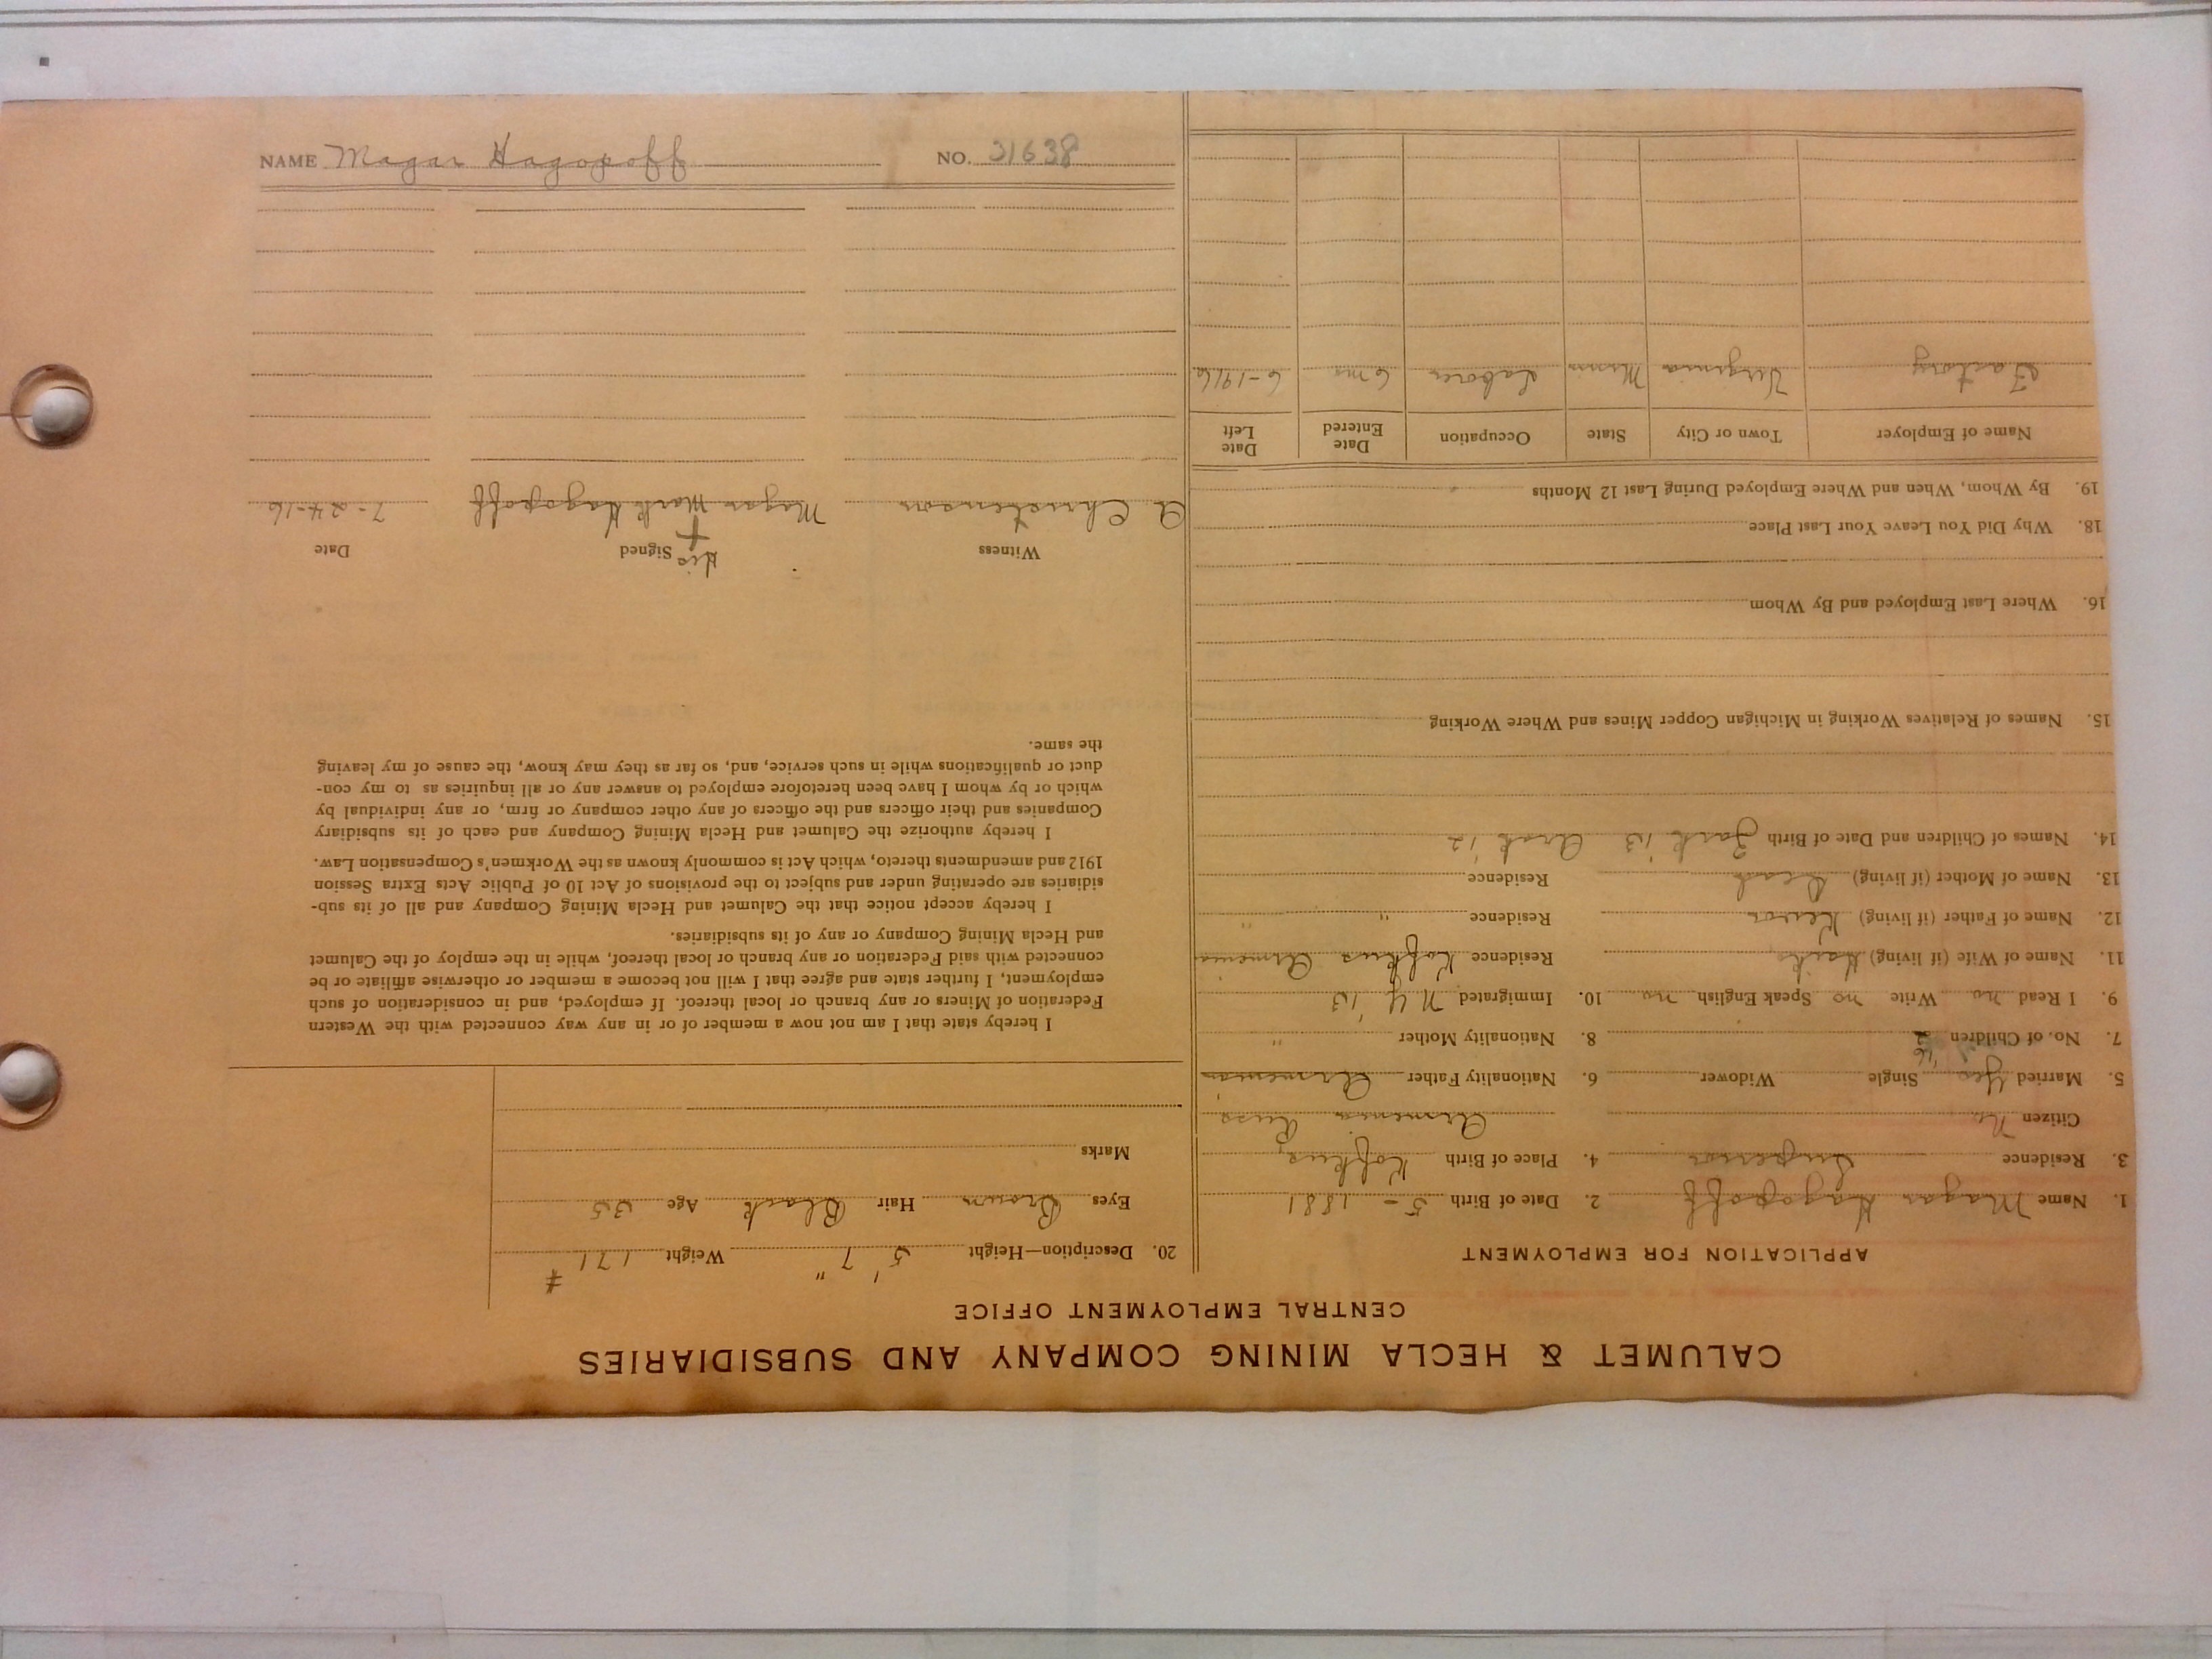 CALUMET & HECLA MINING COMPANY AND SUBSIDIARIES
CENTRAL EMPLOYMENT OFFICE
APPLICATION FOR EMPLOYMENT
1. Name Magar Hagopoff 2. Date of Birth 5 - 1881
3. Residence Superior 4. Place of Birth
Citizen No Armenia Russ
5. Married Yes Single Widower 6. Nationality Father Armenian
7. No. of Children 2 8. Nationality Mother "
9. I Read no Write no Speak English no 10. Immigrated N Y '13
11. Name of Wife (if living) Residence Armenia
12. Name of Father (if living) Residence " "
13. Name of Mother (if living) Dead Residence
14. Names of Children and Date of Birth '13 '12
15. Names of Relatives Working in Michigan Copper Mines and Where Working
16. Where Last Employed and By Whom
18. Why Did You Leave Your Last Place
19. By Whom, When and Where Employed During Last 12 Months
Name of Employer Town or City State Occupation Date Entered Date Left
Factory Virginia Minn Laborer 6 ms 6-1916
20. Description—Height 5' 7" Weight 171 #
Eyes Brown Hair Black Age 35
Marks
I hereby state that I am not now a member of or in any way connected with the Western
Federation of Miners or any branch or local thereof. If employed, and in consideration of such
employment, I further state and agree that I will not become a member or otherwise affiliate or be
connected with said Federation or any branch or local thereof, while in the employ of the Calumet
and Hecla Mining Company or any of its subsidiaries.
I hereby accept notice that the Calumet and Hecla Mining Company and all of its sub-
sidiaries are operating under and subject to the provisions of Act 10 of Public Acts Extra Session
1912 and amendments thereto, which Act is commonly known as the Workmen's Compensation Law.
I hereby authorize the Calumet and Hecla Mining Company and each of its subsidiary
Companies and their officers and the officers of any other company or firm, or any individual by
which or by whom I have been heretofore employed to answer any or all inquiries as to my con-
duct or qualifications while in such service, and, so far as they may know, the cause of my leaving
the same.
Witness Signed Date
His
+
A Christenson Magar Mark Hagopoff 7-24-16
NAME Magar Hagopoff NO. 31638